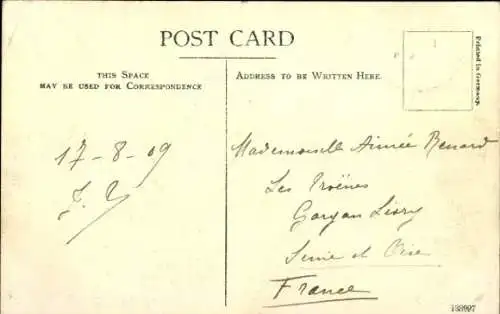 POST CARD
THIS SPACE
MAY BE USED FOR CORRESPONDENCE
ADDRESS TO BE WRITTEN HERE.
Printed in Germany.
17-8-09
Mademoiselle Aimée Renard
Les Troënes
Gargan Livry
Seine et Oise
France